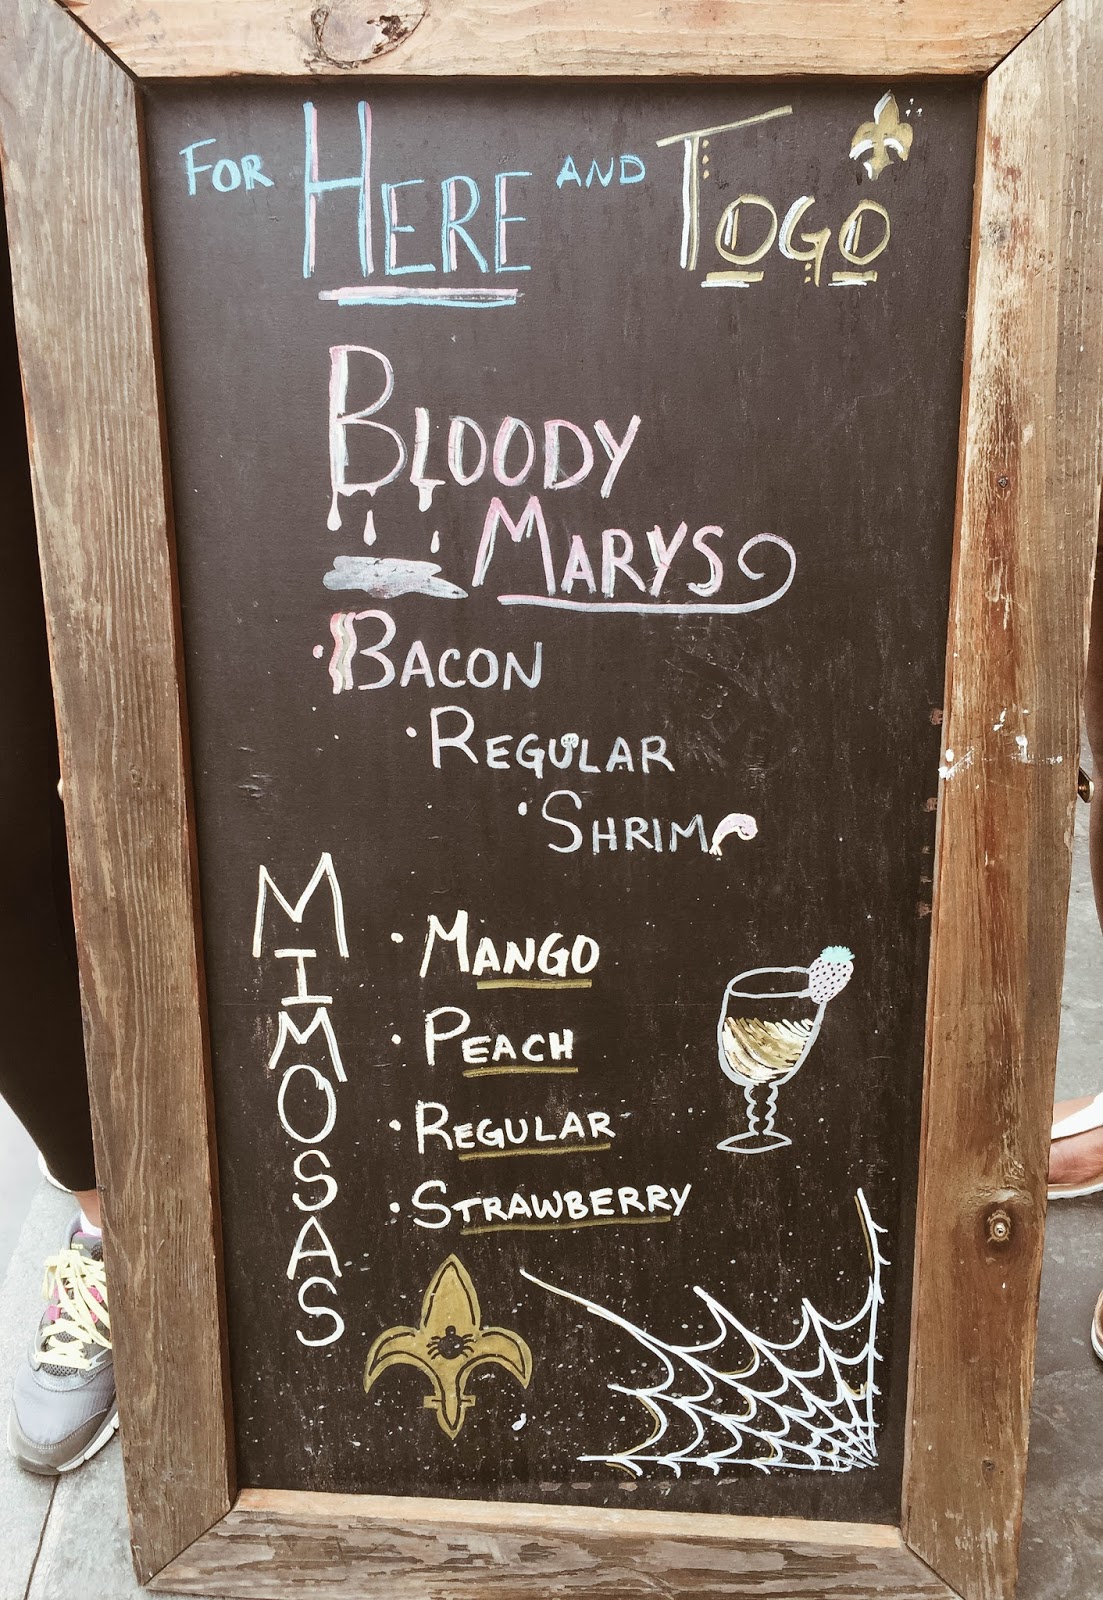 FOR HERE AND TOGO
BLOODY
MARYS
• BACON
• REGULAR
• SHRIMP
MIMOSAS
• MANGO
• PEACH
• REGULAR
• STRAWBERRY